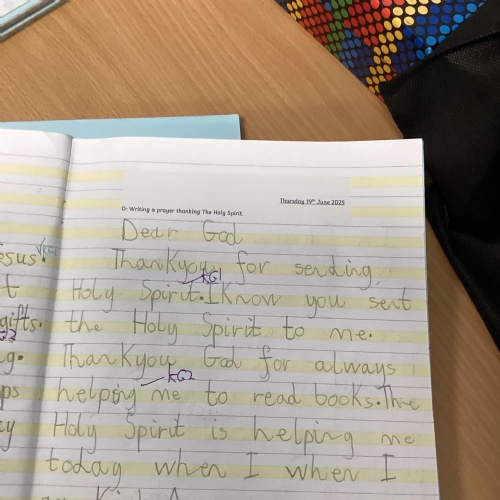 Thursday 19th June 2025
O: Writing a prayer thanking The Holy Spirit.
Dear God
Thankyou for sending
Holy Spirit. I Know you sent
the Holy Spirit to me.
Thankyou God for always
helping me to read books. The
Holy Spirit is helping me
today when I when I
esus
KG1
gifts.
KG2